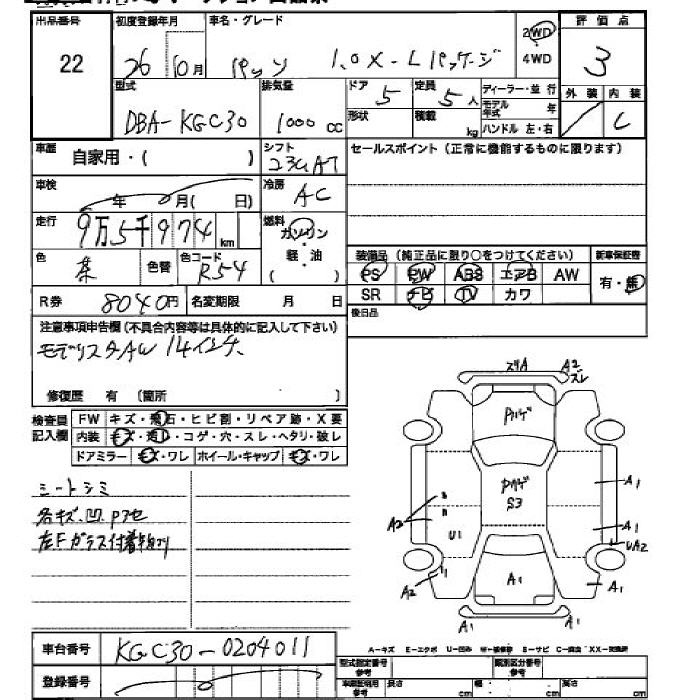 出品番号 初度登録年月 車名・グレード 2WD 4WD 評価点
22 26年10月 パッソ 1.0X-Lパッケージ 3
型式 排気量 ドア 定員 ディーラー・並行 外装 内装
DBA-KGC30 1000cc 5 5人 モデル年式 年 C
形状 積載 kg ハンドル 左・右
車歴 自家用・( ) シフト セールスポイント(正常に機能するものに限ります)
車検 年 月( 日) 冷房 AC
走行 9万5千974km 燃料 ガソリン・軽油( )
色 色替 色コード R54
装備品(純正品に限り○をつけてください) 新車保証書
PS PW ABS エアB AW 有・無
SR ナビ TV カワ
R券 8040円 名変期限 月 日
後日品
注意事項申告欄(不具合内容等は具体的に記入して下さい)
モデリスタAW 14インチ
修復歴 有 (箇所 )
検査員記入欄 FW キズ・飛石・ヒビ割・リペア跡・X要
内装 キズ・汚レ・コゲ・穴・スレ・ヘタリ・破レ
ドアミラー キズ・ワレ ホイール・キャップ キズ・ワレ
シートシミ
各キズ.凹.Pアセ
左Fガラス付着物有り
スリA A2 スレ
Pハゲ
Pハゲ
S3
A1
A1
A2
U1
UA2
A2
A1
A1
A1 A1
車台番号 KGC30-0204011
登録番号
A-キズ E-エクボ U-凹み S-サビ
型式指定番号 参考 類別区分番号 参考
長さ cm 幅 cm 高さ cm